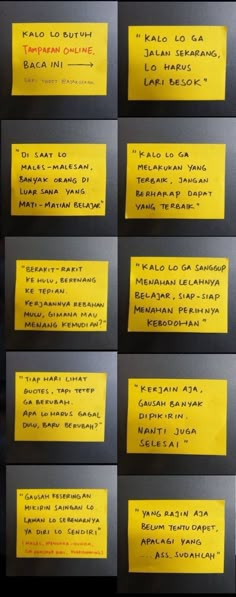 KALO LO BUTUH
TAMPARAN ONLINE,
BACA INI →
" KALO LO GA
JALAN SEKARANG,
LO HARUS
LARI BESOK "
"DI SAAT LO
MALES-MALESAN,
BANYAK ORANG DI
LUAR SANA YANG
MATI-MATIAN BELAJAR"
"KALO LO GA
MELAKUKAN YANG
TERBAIK, JANGAN
BERHARAP DAPAT
YANG TERBAIK"
"BERAKIT-RAKIT
KE HULU, BERENANG
KE TEPIAN.
KERJAANNYA REBAHAN
MULU, GIMANA MAU
MENANG KEMUDIAN?"
"KALO LO GA SANGGUP
MENAHAN LELAHNYA
BELAJAR, SIAP-SIAP
MENAHAN PERIHNYA
KEBODOHAN"
"TIAP HARI LIHAT
QUOTES, TAPI TETEP
GA BERUBAH.
APA LO HARUS GAGAL
DULU, BARU BERUBAH?"
"KERJAIN AJA,
GAUSAH BANYAK
DIPIKIRIN.
NANTI JUGA
SELESAI"
"GAUSAH KESERINGAN
MIKIRIN SAINGAN LO.
LAWAN LO SEBENARNYA
YA DIRI LO SENDIRI"
"YANG RAJIN AJA
BELUM TENTU DAPET,
APALAGI YANG
... ASS, SUDAHLAH"